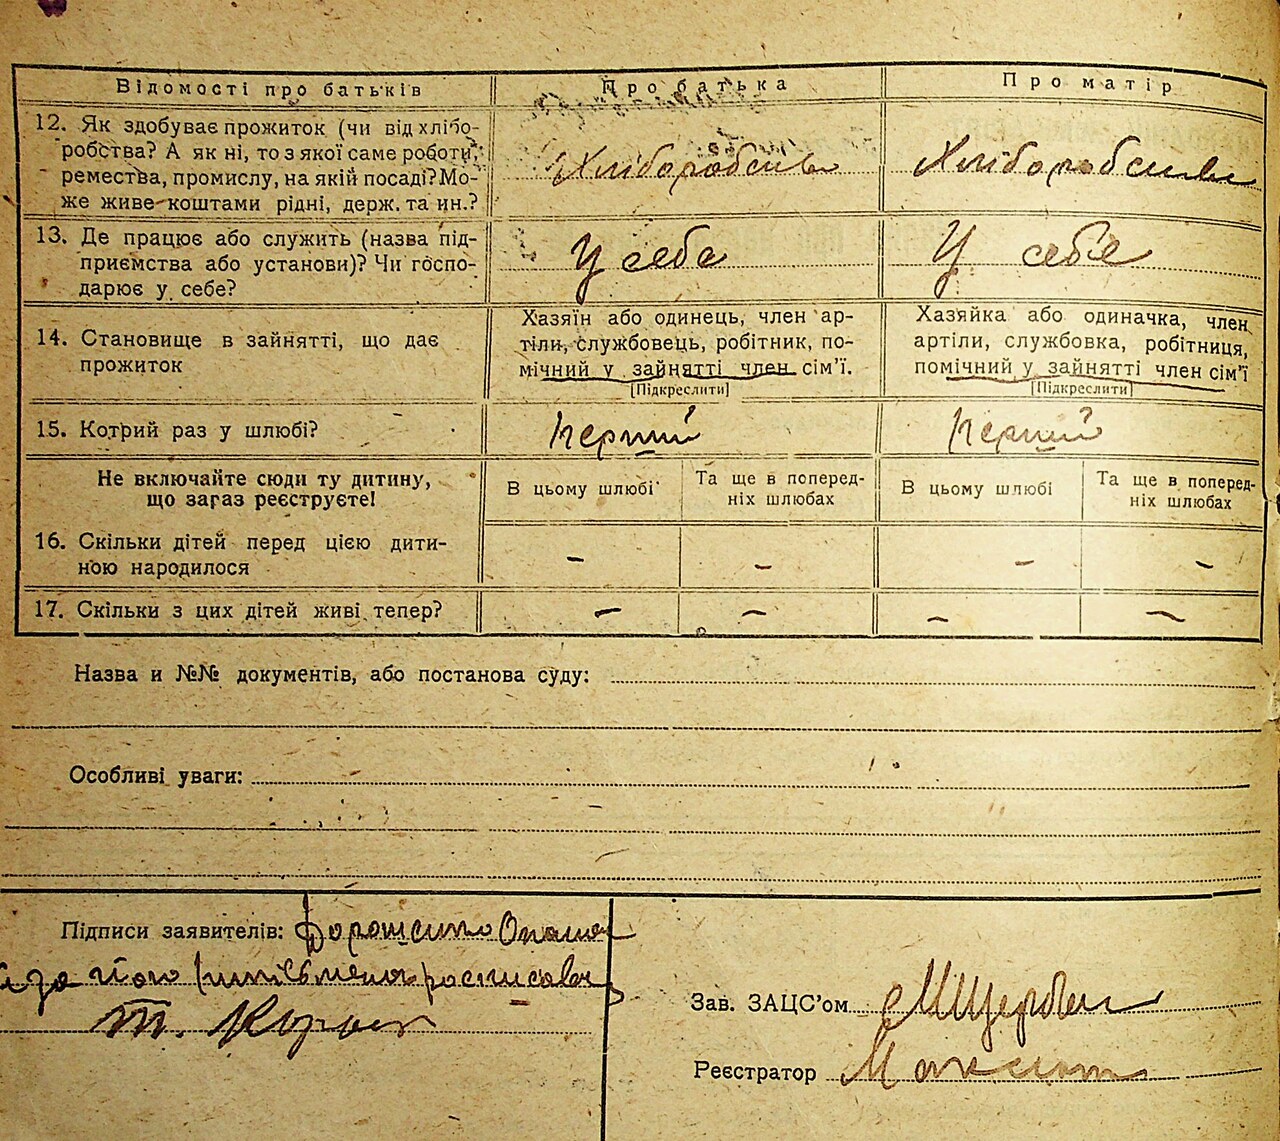 Відомості про батьків
Про батька
Про матір
12. Як здобуває прожиток (чи від хлібо-
робства? А як ні, то з якої саме роботи,
ремества, промислу, на якій посаді? Мо-
же живе коштами рідні, держ. та ин.?
Хліборобсив
Хліборобсиви
13. Де працює або служить (назва під-
приємства або установи)? Чи госпо-
дарює у себе?
У себе
У себе
14. Становище в зайнятті, що дає
прожиток
Хазяїн або одинець, член ар-
тіли, службовець, робітник, по-
мічний у зайнятті член сім'ї.
[Підкреслити]
Хазяйка або одиначка, член
артіли, службовка, робітниця,
помічний у зайнятті член сім'ї
[Підкреслити]
15. Котрий раз у шлюбі?
Перший
Перший
Не включайте сюди ту дитину,
що загаз реєструєте!
В цьому шлюбі
Та ще в поперед-
ніх шлюбах
В цьому шлюбі
Та ще в поперед-
ніх шлюбах
16. Скільки дітей перед цією дити-
ною народилося
–
–
–
–
17. Скільки з цих дітей живі тепер?
–
–
–
–
Назва и №№ документів, або постанова суду:
Особливі уваги:
Підписи заявителів: Дорошенко Опанас
а за його
Т.
Зав. ЗАЦС'ом
Реєстратор